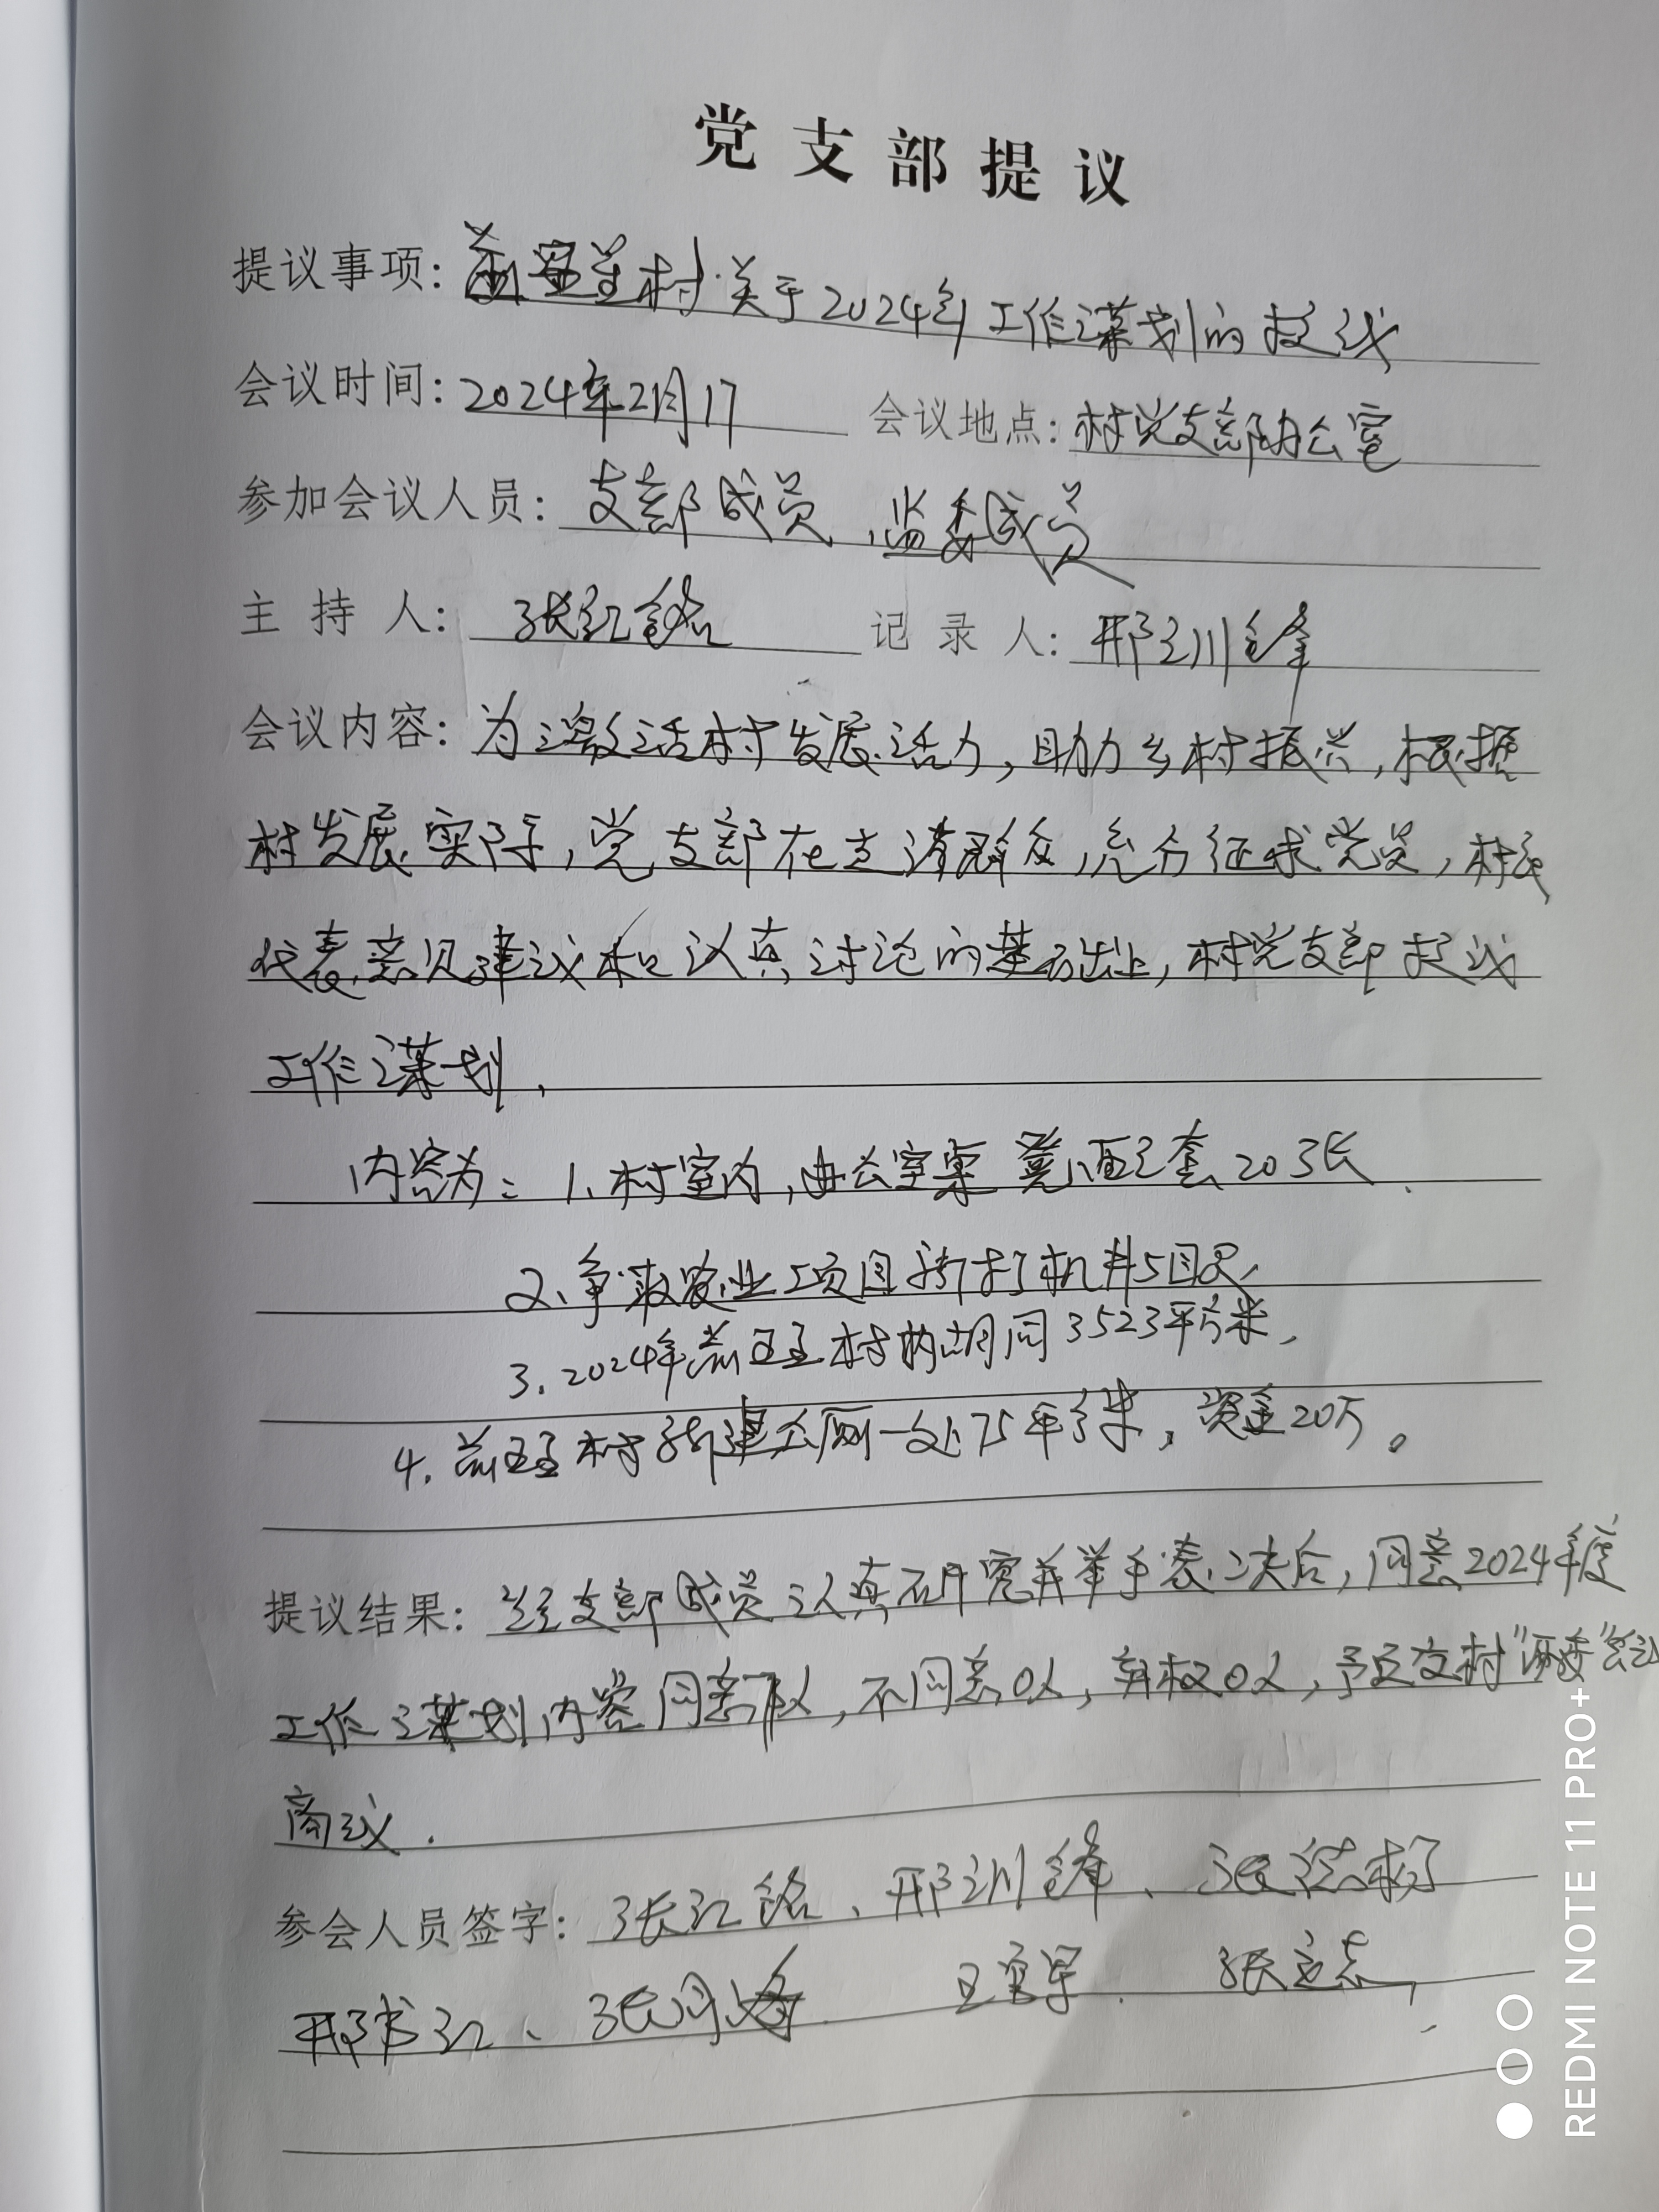 党支部提议
提议事项：村关于2024年工作谋划的提议
会议时间：2024年2月17 会议地点：村党支部办公室
参加会议人员：支部成员、监委成员
主持人：张红铭 记录人：邢训锋
会议内容：为激活村发展活力，助力乡村振兴，根据
村发展实际，党支部在走访群众，充分征求党员，村民
代表意见建议和认真讨论的基础上，村党支部提议
工作谋划，
内容为：1、村室内，办公室桌凳配套20张
2、争取农业项目新打机井5眼、
3、2024年村内胡同3523平方米，
4、村新建公厕一处75平方米，资金20万。
提议结果：经支部成员认真研究并举手表决后，同意2024年度
工作谋划内容同意人，不同意0人，弃权0人，予以交村“两委”会议
商议．
参会人员签字：张红铭、邢训锋、张
邢书江、张月 张志
REDMI NOTE 11 PRO+